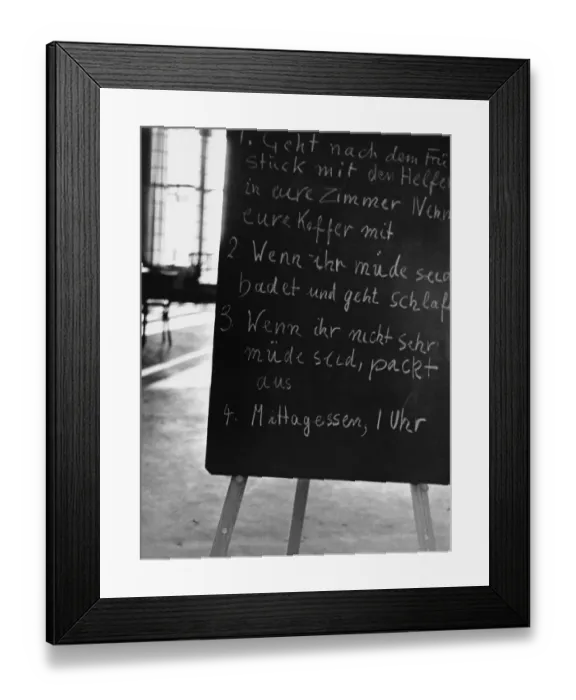 1. Geht nach dem Frü
stück mit den Helfe
in eure Zimmer Nehm
eure Koffer mit
2 Wenn ihr müde seid
badet und geht schlaf
3 Wenn ihr nicht sehr
müde seid, packt
aus
4. Mittagessen, 1 Uhr